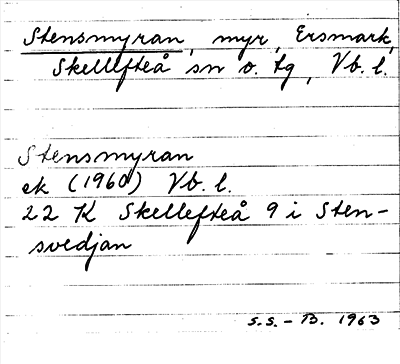 Stensmyran, myr, Ersmark,
Skellefteå sn o. tg, Vb. l.
Stensmyran
ek (1960) Vb. l.
22 K Skellefteå 9 i Sten-
svedjan
S.S. - B. 1963